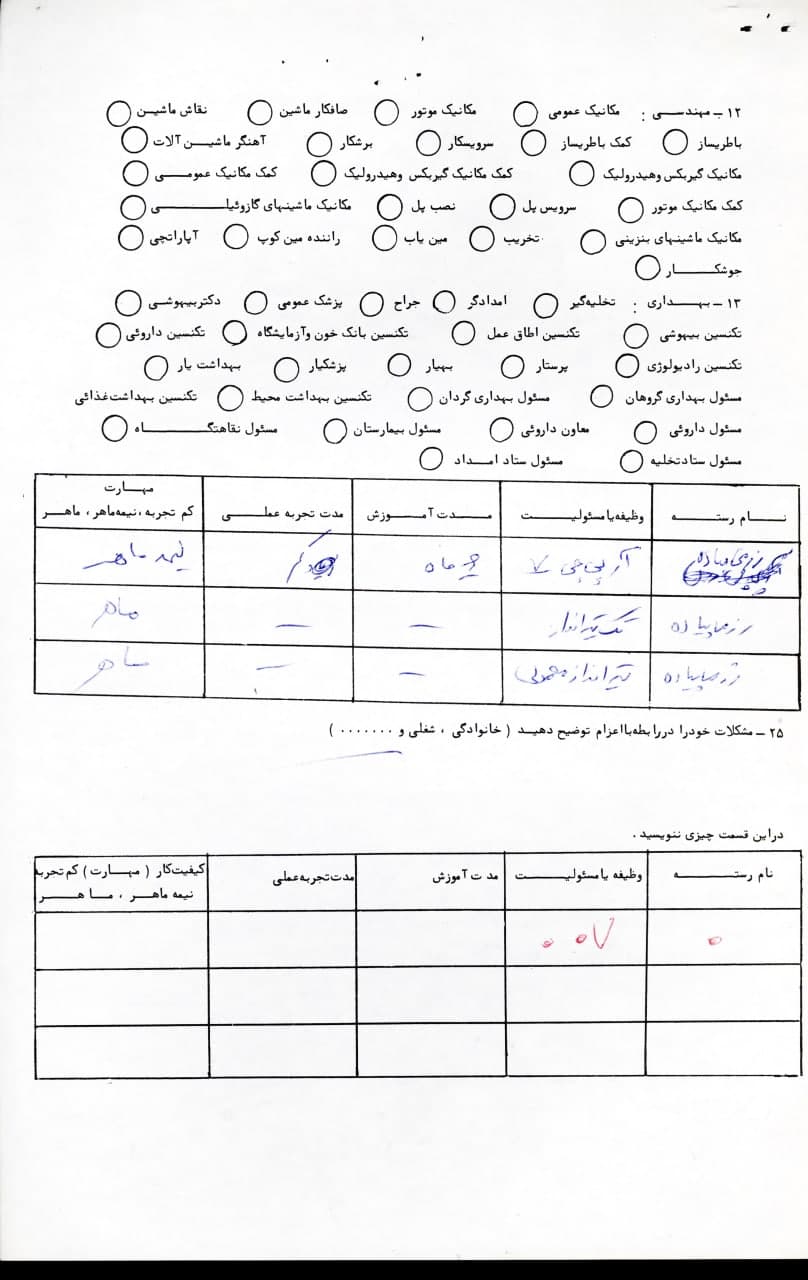 ۱۲ ــ مهندســی : مکانیک عمومی مکانیک موتور صافکار ماشین نقاش ماشیــن
باطریساز کمک باطریساز سرویسکار برشکار آهنگر ماشیــن آلات
مکانیک گیربکس وهیدرولیک کمک مکانیک گیربکس وهیدرولیک کمک مکانیک عمومــی
کمک مکانیک موتور سرویس پل نصب پل مکانیک ماشینهای گازوئیلــی
مکانیک ماشینهای بنزینی تخریب مین یاب راننده مین کوپ آپاراتچی
جوشکــار
۱۳ ــ بهــداری : تخلیه‌گیر امدادگر جراح پزشک عمومی دکتربیهوشــی
تکنسین بیهوشی تکنسین اطاق عمل تکنسین بانک خون وآزمایشگاه تکنسین داروئی
تکنسین رادیولوژی پرستار بهیار پزشکیار بهداشت یار
مسئول بهداری گروهان مسئول بهداری گردان تکنسین بهداشت محیط تکنسین بهداشت‌غذائی
مسئول داروئی معاون داروئی مسئول بیمارستان مسئول نقاهتگــاه
مسئول ستادتخلیه مسئول ستاد امــداد
نــام رستــه وظیفه‌یا‌مسئولیــت مــدت آمــوزش مدت تجربه عملــی مهــارت
کم تجربه ،نیمه‌ماهر ، ماهــر
آر پی جی ۷ ماه کم نیمه ماهر
رزمی پیاده تک تیرانداز — — ماهر
رزمی پیاده تیرانداز معمولی — — ماهر
۲۵ ــ مشکلات خودرا دررابطه‌بااعزام توضیح دهیــد ( خانوادگی ، شغلی و ۰۰۰۰۰۰۰ )
دراین قسمت چیزی ننویسید .
نام رستــه وظیفه یا مسئولیــت مد ت آموزش مدت‌تجربه‌عملی کیفیت‌کار ( مهــارت ) کم‌تجربه
نیمه ماهــر ، مــا هــر